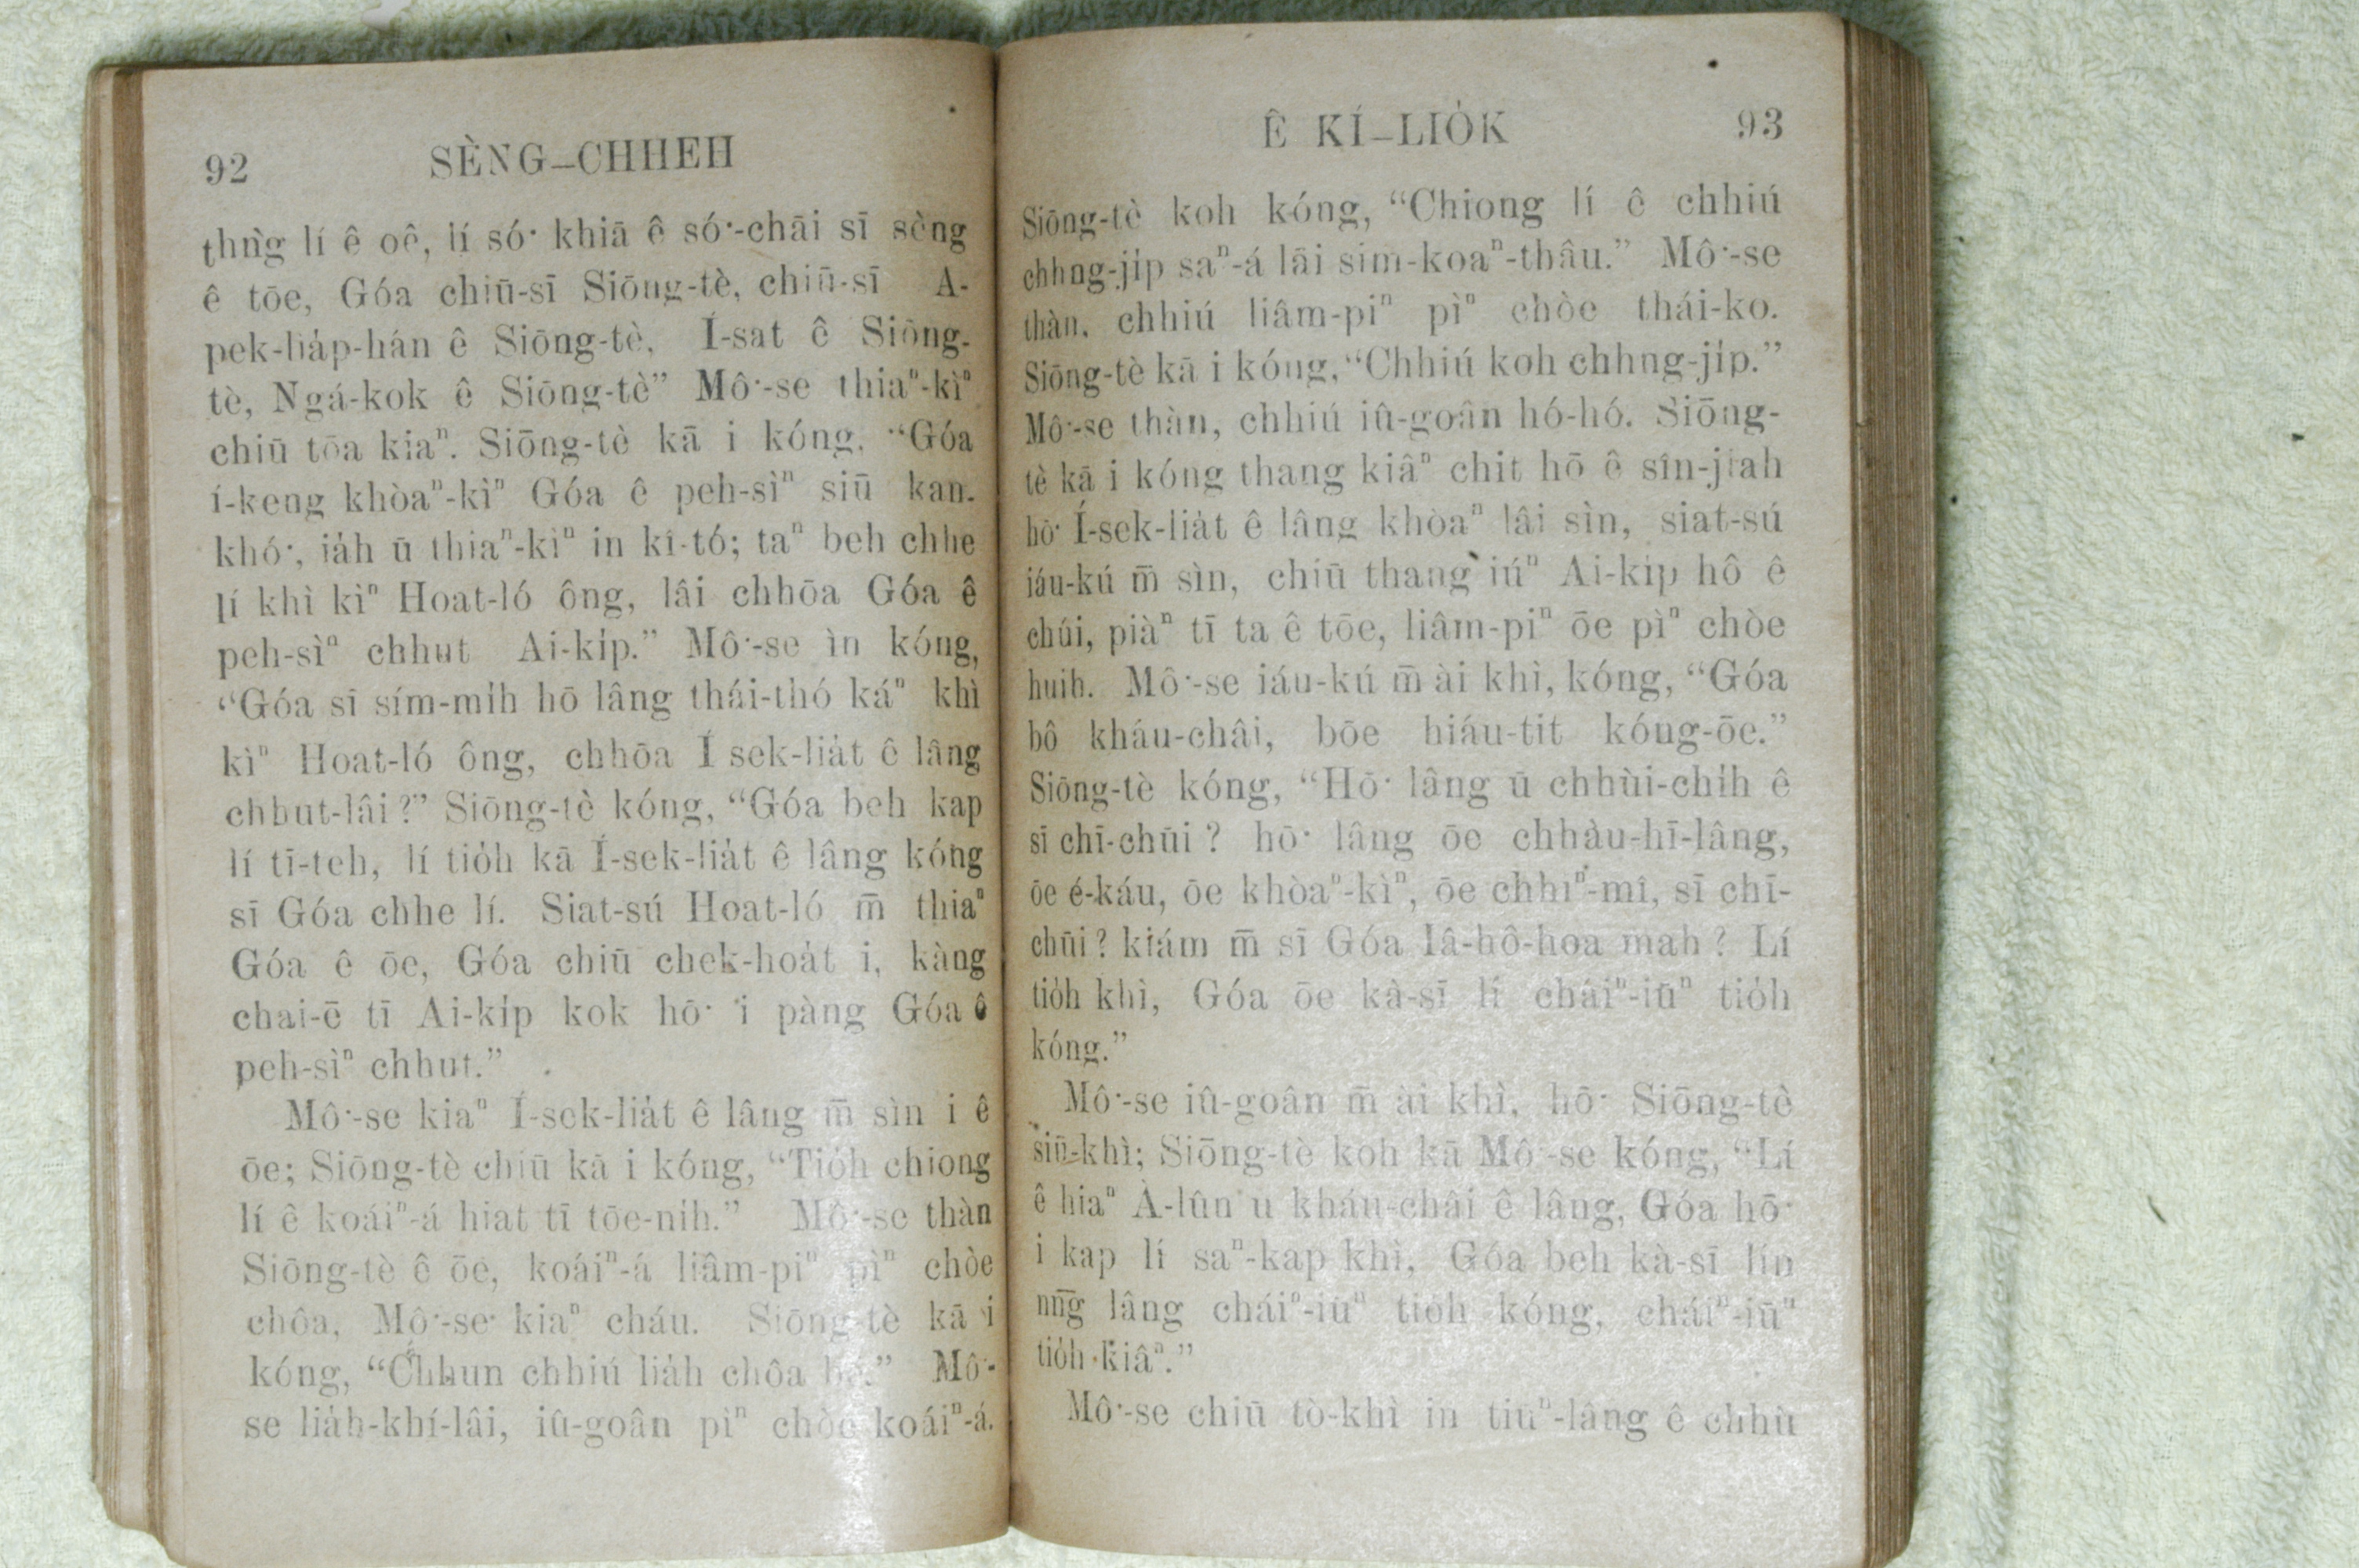 92 SÈNG-CHHEH
thǹg lí ê oê, lí só͘ khiā ê só͘-chāi sī sèng
ê tōe, Góa chiū-sī Siōng-tè, chiū-sī A-
pek-lia̍p-hán ê Siōng-tè, Í-sat ê Siōng-
tè, Ngá-kok ê Siōng-tè” Mô͘-se thiaⁿ-kìⁿ
chiū tōa kiaⁿ. Siōng-tè kā i kóng, “Góa
í-keng khòaⁿ-kìⁿ Góa ê peh-sìⁿ siū kan-
khó͘, ia̍h ū thiaⁿ-kìⁿ in kî-tó; taⁿ beh chhe
lí khì kìⁿ Hoat-ló ông, lâi chhōa Góa ê
peh-sìⁿ chhut Ai-ki̍p.” Mô͘-se ìn kóng,
“Góa sī sím-mi̍h hō lâng thái-thó káⁿ khì
kìⁿ Hoat-ló ông, chhōa Í sek-lia̍t ê lâng
chhut-lâi?” Siōng-tè kóng, “Góa beh kap
lí tī-teh, lí tio̍h kā Í-sek-lia̍t ê lâng kóng
sī Góa chhe lí. Siat-sú Hoat-ló m̄ thiaⁿ
Góa ê ōe, Góa chiū chek-hoa̍t i, kàng
chai-ē tī Ai-ki̍p kok hō͘ i pàng Góa ê
peh-sìⁿ chhut.”
Mô͘-se kiaⁿ Í-sek-lia̍t ê lâng m̄ sìn i ê
ōe; Siōng-tè chiū kā i kóng, “Tio̍h chiong
lí ê koáiⁿ-á hiat tī tōe-ni̍h.” Mô͘-se thàn
Siōng-tè ê ōe, koáiⁿ-á liâm-piⁿ pìⁿ chòe
chôa, Mô͘-se kiaⁿ cháu. Siōng-tè kā i
kóng, “Chhun chhiú lia̍h chôa Mô͘-
se lia̍h-khí-lâi, iû-goân pìⁿ chòe koáiⁿ-á.
Ê KÍ-LIO̍K 93
Siōng-tè koh kóng, “Chiong lí ê chhiú
chhng-ji̍p saⁿ-á lāi sim-koaⁿ-thâu.” Mô͘-se
thàn, chhiú liâm-piⁿ pìⁿ chòe thái-ko.
Siōng-tè kā i kóng, “Chhiú koh chhng-ji̍p.”
Mô͘-se thàn, chhiú iû-goân hó-hó. Siōng-
tè kā i kóng thang kiâⁿ chit hō ê sîn-jiah
hō͘ Í-sek-lia̍t ê lâng khòaⁿ lâi sìn, siat-sú
iáu-kú m̄ sìn, chiū thang iúⁿ Ai-ki̍p hô ê
chúi, piàⁿ tī ta ê tōe, liâm-piⁿ ōe pìⁿ chòe
huih. Mô͘-se iáu-kú m̄ ài khì, kóng, “Góa
bô kháu-châi, bōe hiáu-tit kóng-ōe.”
Siōng-tè kóng, “Hō͘ lâng ū chhùi-chi̍h ê
sī chī-chūi? hō͘ lâng ōe chhàu-hī-lâng,
ōe é-káu, ōe khòaⁿ-kìⁿ, ōe chhiⁿ-mî, sī chī-
chūi? kiám m̄ sī Góa Iâ-hô-hoa mah? Lí
tio̍h khì, Góa ōe kà-sī lí cháiⁿ-iūⁿ tio̍h
kóng.”
Mô͘-se iû-goân m̄ ài khì, hō͘ Siōng-tè
siū-khì; Siōng-tè koh kā Mô͘-se kóng, “Lí
ê hiaⁿ À-lûn u kháu-châi ê lâng, Góa hō͘
i kap lí saⁿ-kap khì, Góa beh kà-sī lín
nn̄g lâng cháiⁿ-iūⁿ tio̍h kóng, cháiⁿ-iūⁿ
tio̍h kiâⁿ.”
Mô͘-se chiū tò-khì in tiūⁿ-lâng ê chhù